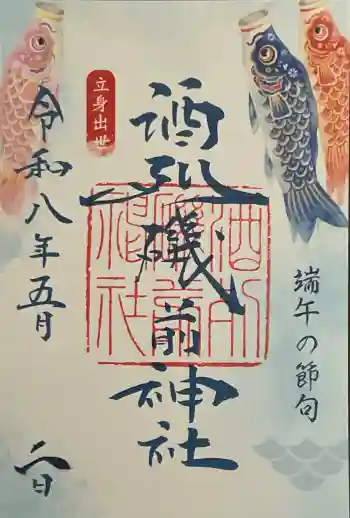 端午の節句
酒列礒前神社
酒列
礒前
神社
立身出世
令和八年五月二日